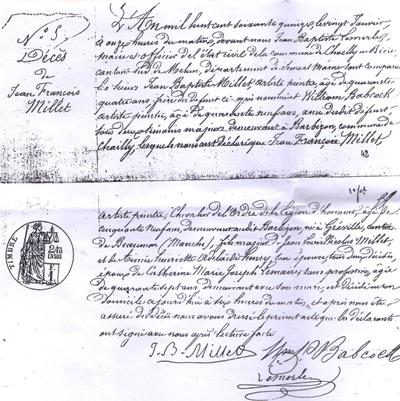 N° 5
Décès
de
Jean François
Millet
L'An mil huit cent soixante quinze le vingt Janvier
à onze heures du matin, devant nous Jean Baptiste
maire et officier de l'état civil de la commune de Chailly en Bière
canton sud de Melun, département de Seine et Marne, sont comparus
les sieurs Jean Baptiste Millet, artiste peintre, âgé de quarante
quatre ans, frère du défunt ci-après nommé et William Babcock
artiste peintre, âgé de quarante neuf ans, ami du dit défunt
tous deux témoins majeurs demeurant à Barbizon, commune de
Chailly, lesquels nous ont déclaré que Jean François Millet
artiste peintre, Chevalier de l'Ordre de la Légion d'honneur, âgé de
cinquante neuf ans, demeurant audit Barbizon, né à Gréville, canton
de Beaumont (Manche), fils majeur de Jean Louis Nicolas Millet,
et de Aimée Henriette Adélaïde Henry, son épouse, tous deux décédés
époux de Catherine Marie Joseph Lemaire, sans profession, âgée
de quarante sept ans, demeurant avec son mari, est décédé en son
domicile aujourd'hui à six heures du matin, et après nous être
assuré du décès nous avons dressé le présent acte que les déclarants
ont signé avec nous après lecture faite
J-B-Millet Wm P Babcock
TIMBRE